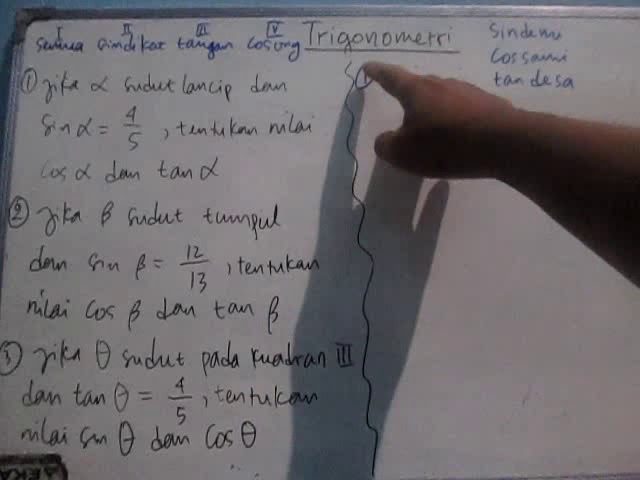 I II III IV
semua sindikat tangan cosong
Trigonometri
Sin demi
Cos sami
tan desa
① jika α sudut lancip dan
sin α = 4/5 , tentukan nilai
cos α dan tan α
② jika β sudut tumpul
dan sin β = 12/13 , tentukan
nilai cos β dan tan β
③ jika θ sudut pada kuadran III
dan tan θ = 4/5 , tentukan
nilai sin θ dan cos θ
①